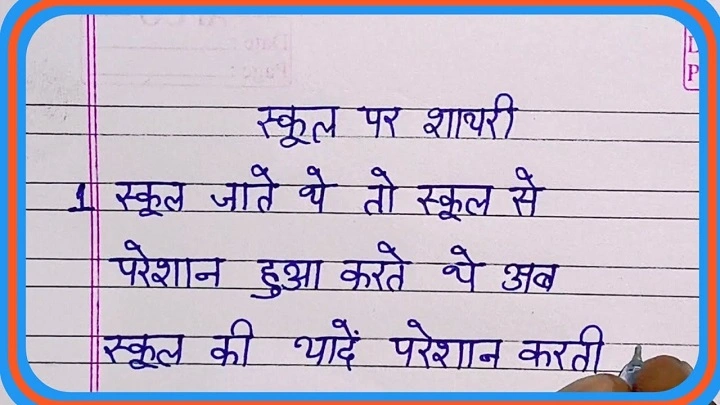 स्कूल पर शायरी
1 स्कूल जाते थे तो स्कूल से
परेशान हुआ करते थे अब
स्कूल की यादें परेशान करती